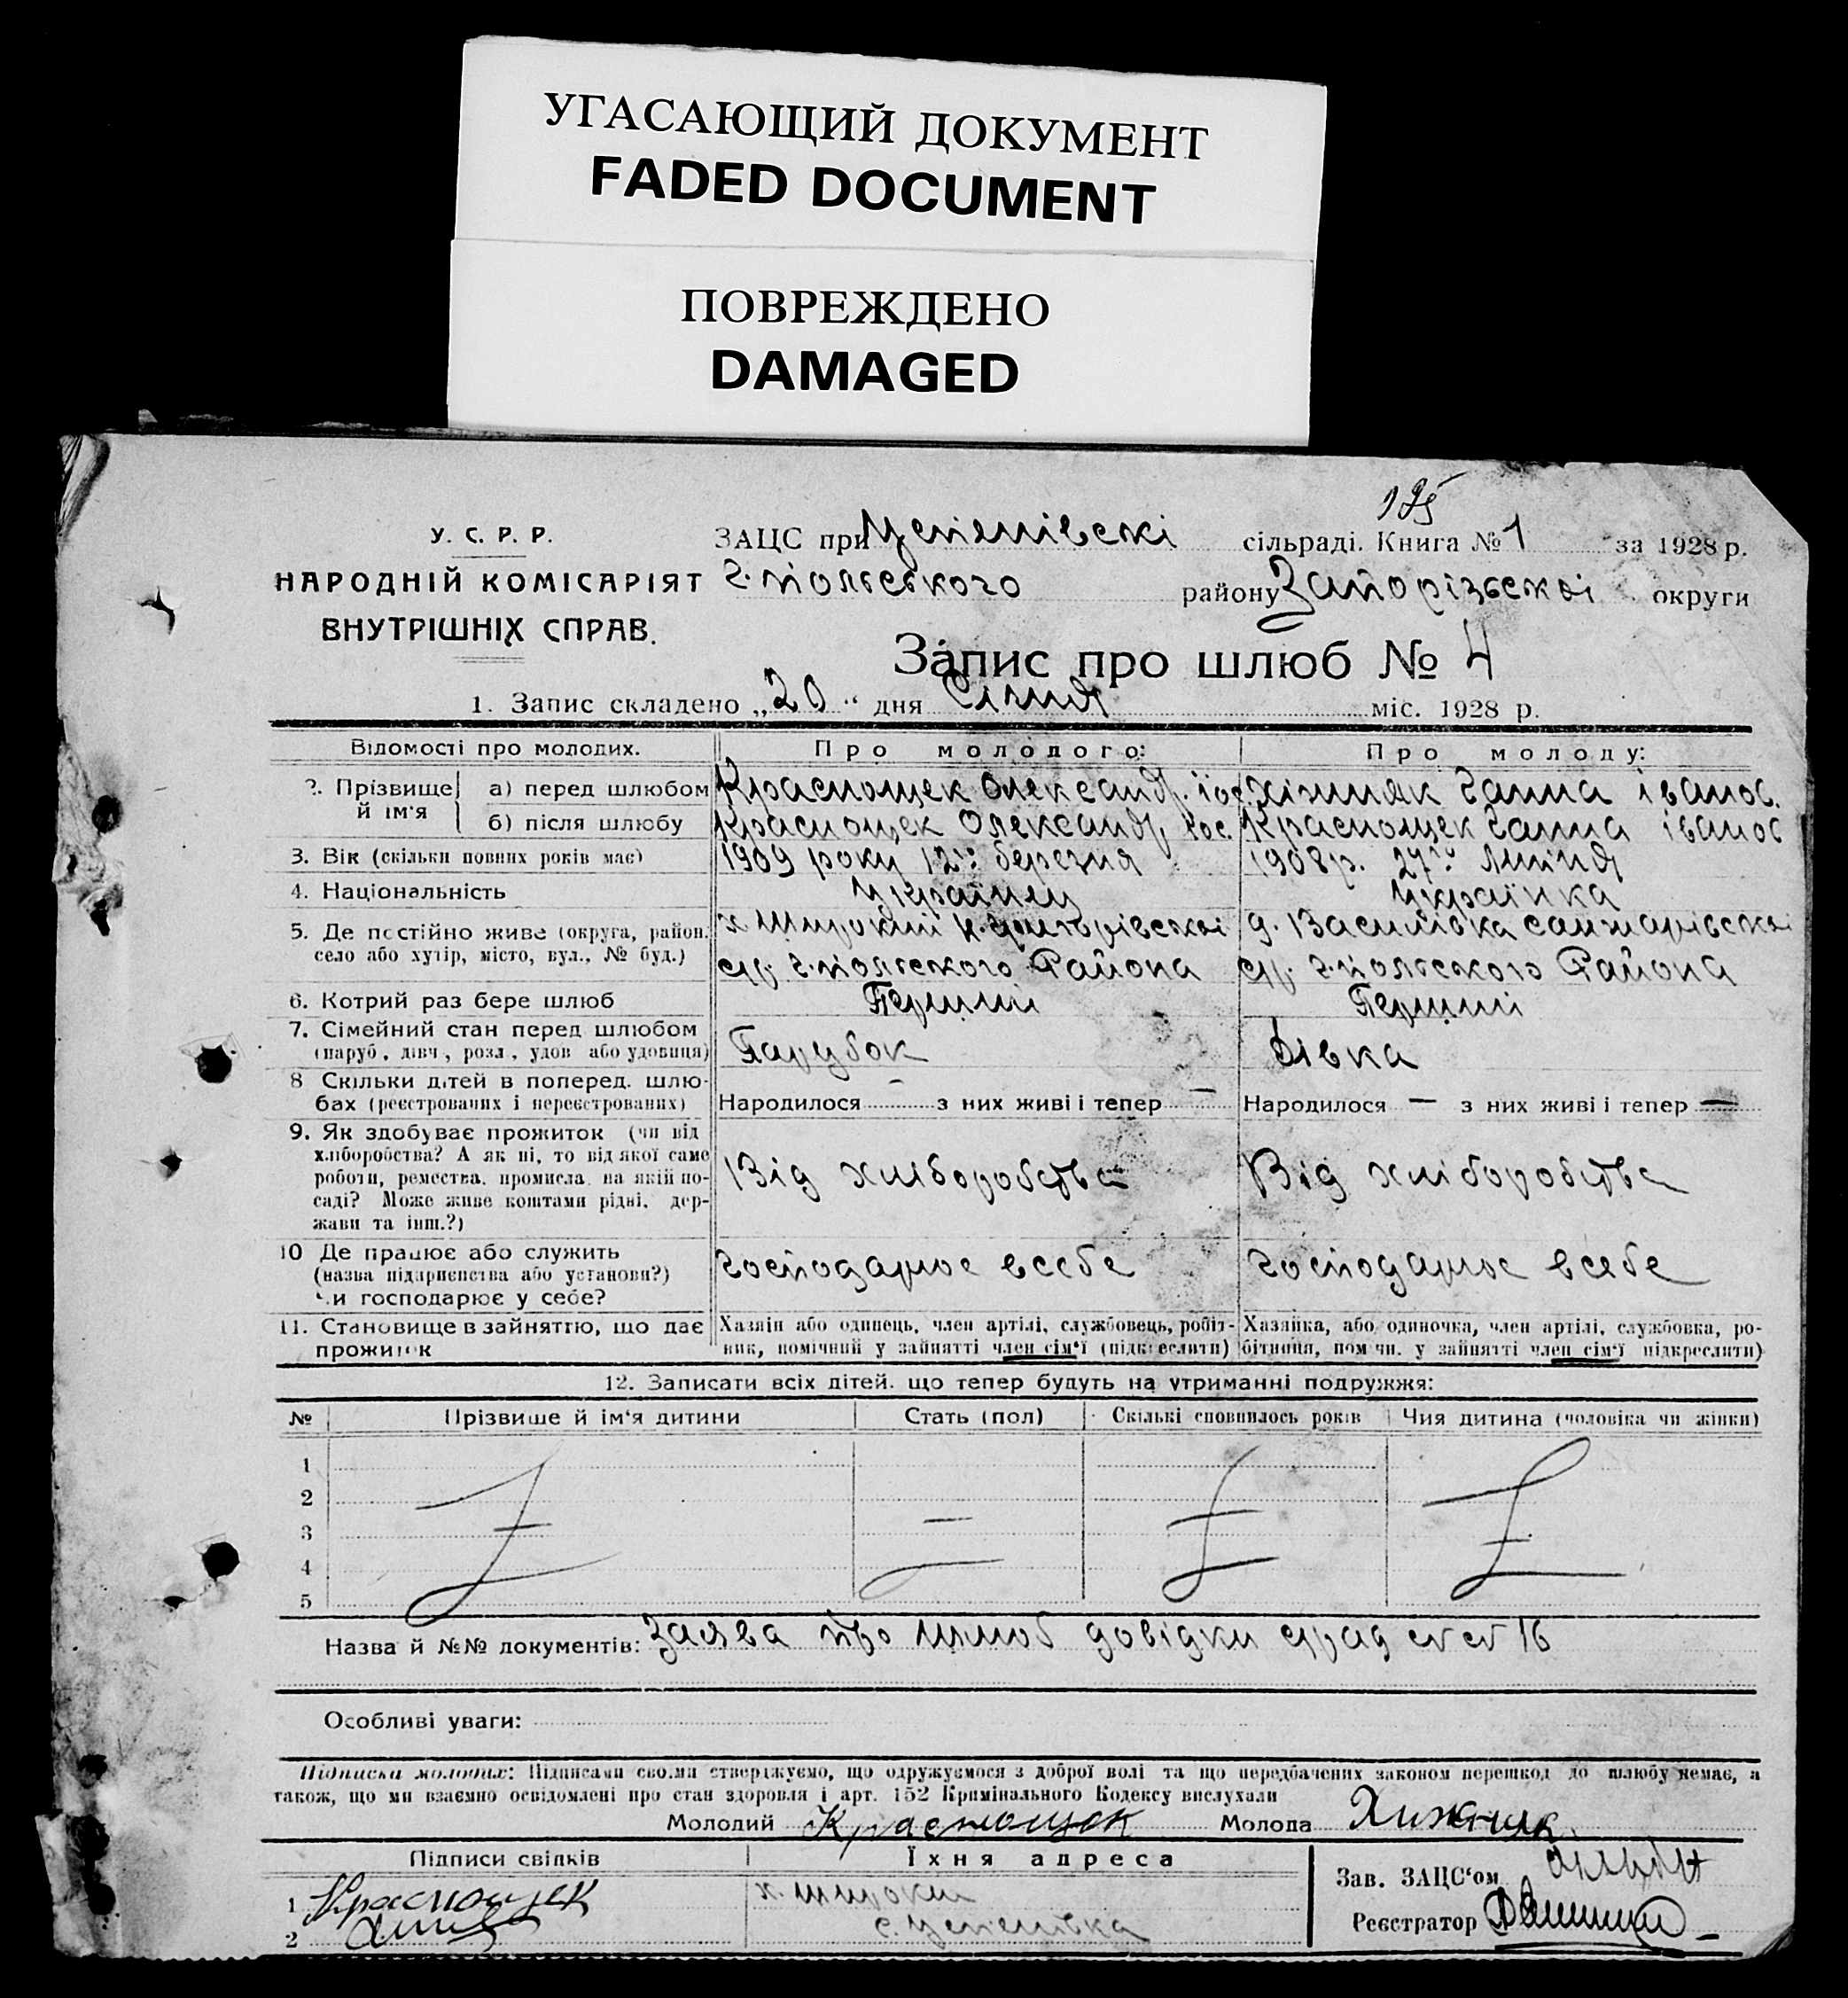 УГАСАЮЩИЙ ДОКУМЕНТ
FADED DOCUMENT
ПОВРЕЖДЕНО
DAMAGED
195
У. С. Р. Р.
НАРОДНІЙ КОМІСАРІЯТ
ВНУТРІШНІХ СПРАВ.
ЗАЦС при Успенівскі сільраді. Книга № 1 за 1928 р.
Г.Польського району Запорізьскоі округи
Запис про шлюб № 4
1. Запис складено „20“ дня Січня міс. 1928 р.
Відомості про молодих. Про молодого: Про молоду:
2. Прізвище й ім'я
а) перед шлюбом Краснощек Олександ. Хіжняк Ганна іванов.
б) після шлюбу Краснощек Олександр Краснощек Ганна іванов
3. Вік (скільки повних років має) 1909 року 12го березня 1908р. 27го Липня
4. Національність Українец Українка
5. Де постійно живе (округа, район, село або хутір, місто, вул., № буд.)
х Широкий Н.Григорівскоі д. Василівка санжарівскоі
с/р. Г.Польского Района с/р. Г.Польского Района
6. Котрий раз бере шлюб Перший Перший
7. Сімейний стан перед шлюбом
(паруб., дівч., розл., удов. або удовиця) Парубок Дівка
8 Скільки дітей в поперед. шлюбах (реєстрованих і нереєстрованих) Народилося – з них живі і тепер – Народилося – з них живі і тепер –
9. Як здобуває прожиток (чи від
хліборобства? А як ні, то від якої саме
роботи, ремества, промисла, на якій по-
саді? Може живе коштами рідні, дер-
жави та інш.?)
Від хліборобства Від хліборобства
10 Де працює або служить
(назва підприємства або установи?)
Чи господарює у себе?
Господарює всебе Господарює всебе
11. Становище в зайняттю, що дає
прожиток
Хазяїн або одинець, член артілі, службовець, робіт-
ник, помічний у зайнятті член сім'ї (підкреслити)
Хазяйка, або одиночка, член артілі, службовка, ро-
бітниця, помічн. у зайнятті член сім'ї підкреслити)
12. Записати всіх дітей, що тепер будуть на утриманні подружжя:
№ Прізвище й ім'я дитини Стать (пол) Скількі сповнилось років Чия дитина (чоловіка чи жінки)
1
2
3
4
5
Назва й №№ документів: Заява про шлюб довідки с/рад 16
Особливі уваги:
Підписка молодих: Підписами своїми стверджуємо, що одружуємося з доброї волі та що передбачених законом перешкод до шлюбу немає, а
також, що ми взаємно освідомлені про стан здоровля і арт. 152 Кримінального Кодексу вислухали
Молодий Краснощек Молода Хижняк
Підписи свідків Їхня адреса
1 Краснощек х. Широкий
2 с. Успенівка
Зав. ЗАЦС'ом
Реєстратор